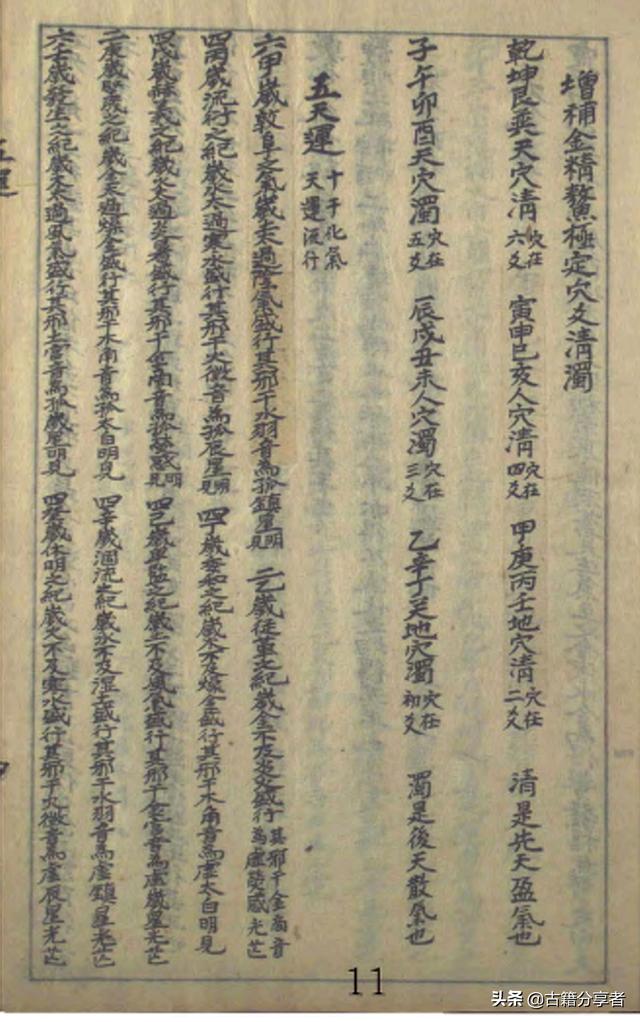 增補金精鰲極定穴爻清濁
乾坤艮巽天穴清穴在六爻 寅申巳亥人穴清穴在四爻 甲庚丙壬地穴清穴在二爻 清是先天盈氣也
子午卯酉天穴濁穴在五爻 辰戌丑未人穴濁穴在三爻 乙辛丁癸地穴濁穴在初爻 濁是後天散氣也
五天運十干化氣天運流行
六甲歲敦阜之紀歲土太過濕氣盛行其邪干水羽音為孤鎮星明見 二乙歲從革之紀歲金不及炎火盛行其邪干金商音為虛熒惑光芒
四丙歲流行之紀歲水太過寒水盛行其邪干火徵音為孤辰星明見 四丁歲委和之紀歲木不及燥金盛行其邪干木角音為虛太白明見
四戊歲赫羲之紀歲火太過炎暑盛行其邪干金商音為孤熒惑明見 四己歲卑監之紀歲土不及風氣盛行其邪干土宮音為虛歲星光芒
二庚歲堅成之紀歲金太過燥金盛行其邪干木角音為孤太白明見 四辛歲涸流之紀歲水不及濕土盛行其邪干水羽音為虛鎮星光芒
六壬歲發生之紀歲木太過風氣盛行其邪土宮音為孤歲星明見 四癸歲伏明之紀歲火不及寒水盛行其邪干火徵音為虛辰星光芒
五運
11
头条 @古籍分享者